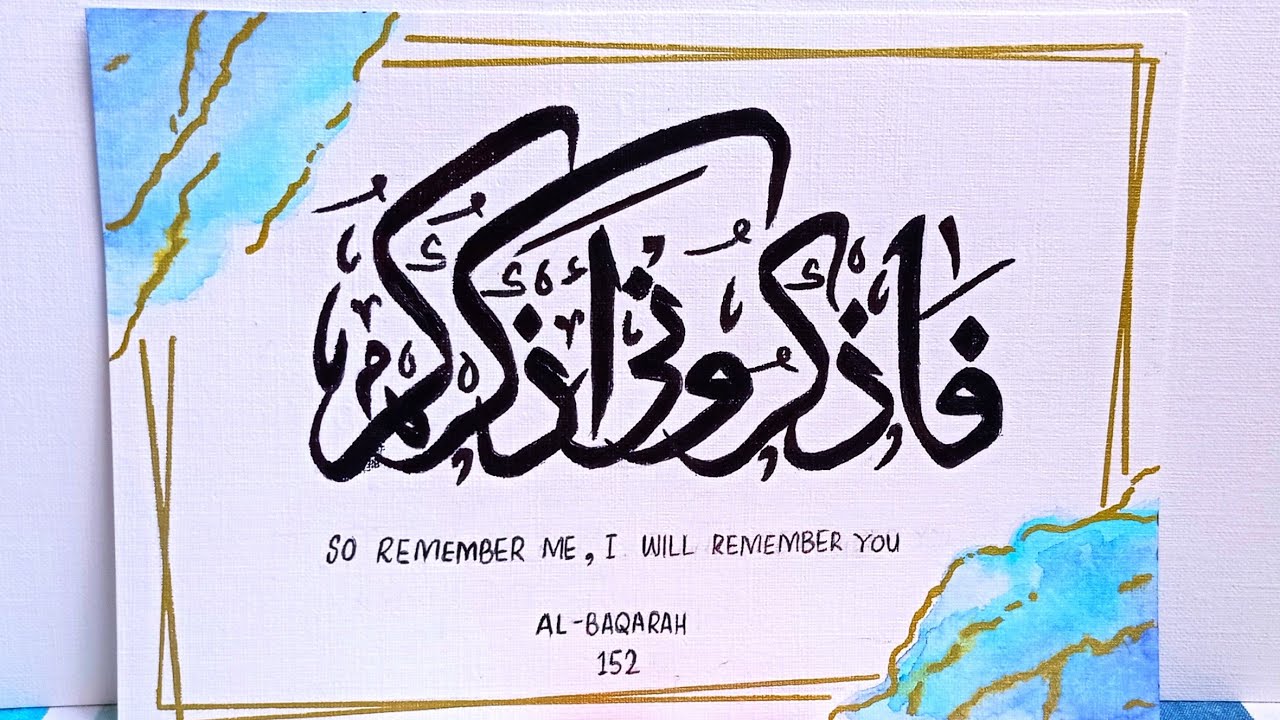 فَاذْكُرُونِي أَذْكُرْكُمْ
SO REMEMBER ME, I WILL REMEMBER YOU
AL-BAQARAH
152